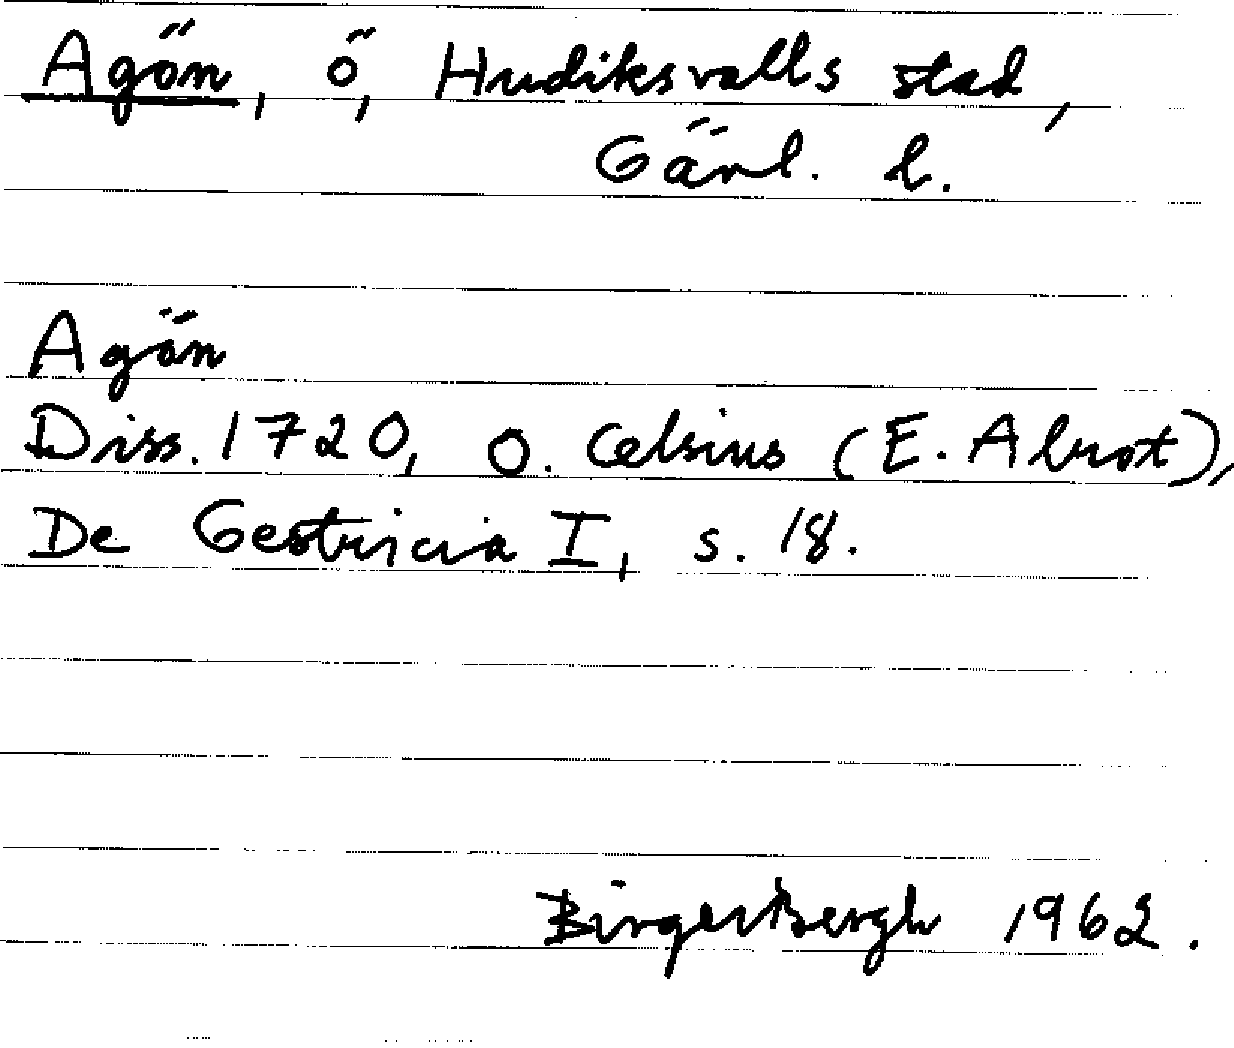 Agön, ö, Hudiksvalls stad,
Gävl. l.
Agön
Diss. 1720, O. Celsius (E. Alrot),
De Gestricia I, s. 18.
Birger Bergh 1962.